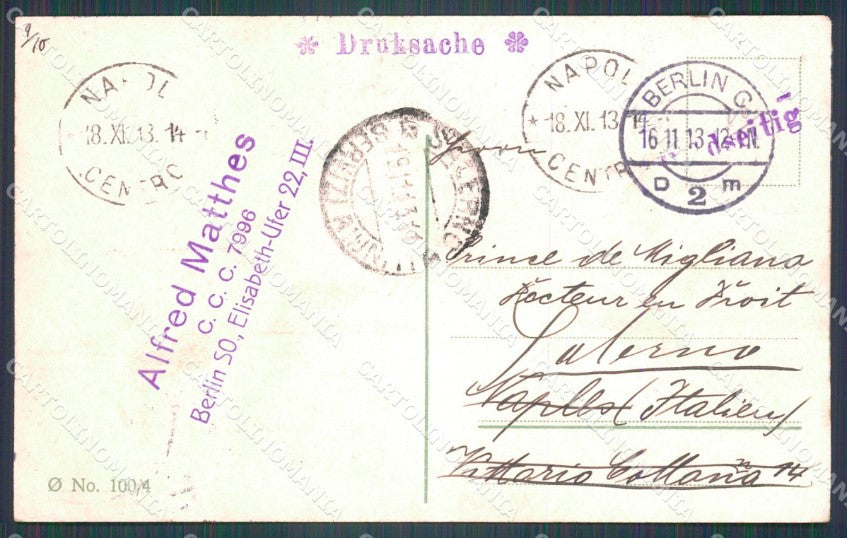 9/10
✻ Druksache ✻
NAPOL
* 18.XI.13.14-
CENTRO
NAPOL
* 18.XI.13.14-
CENTR
BERLIN C
16.11.13.12-1N.
D 2 E
dseitig
SALERNO
Alfred Matthes
C. C. C. 7996
Berlin SO, Elisabeth-Ufer 22, III.
Prince de Migliano
Recteur en Droit
Salerno
Naples (Italien)
Vittorio Cottano 14
Ø No. 100/4
CARTOLINOMANIA